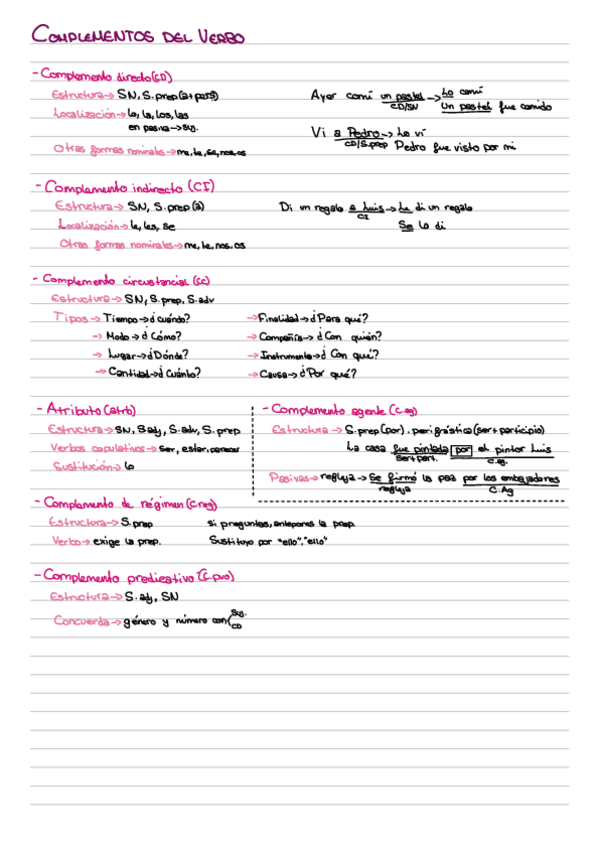 COMPLEMENTOS DEL VERBO
- Complemento directo (CD)
Estructura → SN, S.prep (a + pers)
Ayer comí un pastel → Lo comí
CD/SN
Un pastel fue comido
Localización → lo, la, los, las
en pasiva → suj.
Vi a Pedro → Lo ví
CD/S.prep
Pedro fue visto por mi
Otras formas nominales → me, te, se, nos, os
- Complemento indirecto (CI)
Estructura → SN, S.prep (a)
Di un regalo a Luis → Le di un regalo
CI
Localización → le, les, se
Se lo di
Otras formas nominales → me, te, nos, os
- Complemento circustancial (CC)
Estructura → SN, S.prep, S.adv
Tipos → Tiempo → ¿cuándo?
→ Finalidad → ¿Para qué?
→ Modo → ¿Cómo?
→ Compañía → ¿Con quién?
→ Lugar → ¿Dónde?
→ Instrumento → ¿Con qué?
→ Cantidad → ¿Cuánto?
→ Causa → ¿Por qué?
- Atributo (atrb)
Estructura → SN, S.adj, S.adv, S.prep
Verbos copulativos → ser, estar, parecer
Sustitución → lo
- Complemento agente (C.ag)
Estructura → S.prep (por). perigrástica (ser + participio)
La casa fue pintada por el pintor Luis
ser + part.
C.ag.
Pasivas → refleja → Se firmó la paz por los embajadores
refleja
C.Ag
- Complemento de régimen (C.reg)
Estructura → S.prep
si preguntas, antepones la prep.
Verbo → exige la prep.
Sustituyo por "ello", "ello"
- Complemento predicativo (C.pvo)
Estructura → S.adj, SN
Concuerda → género y número con
Suj.
CD